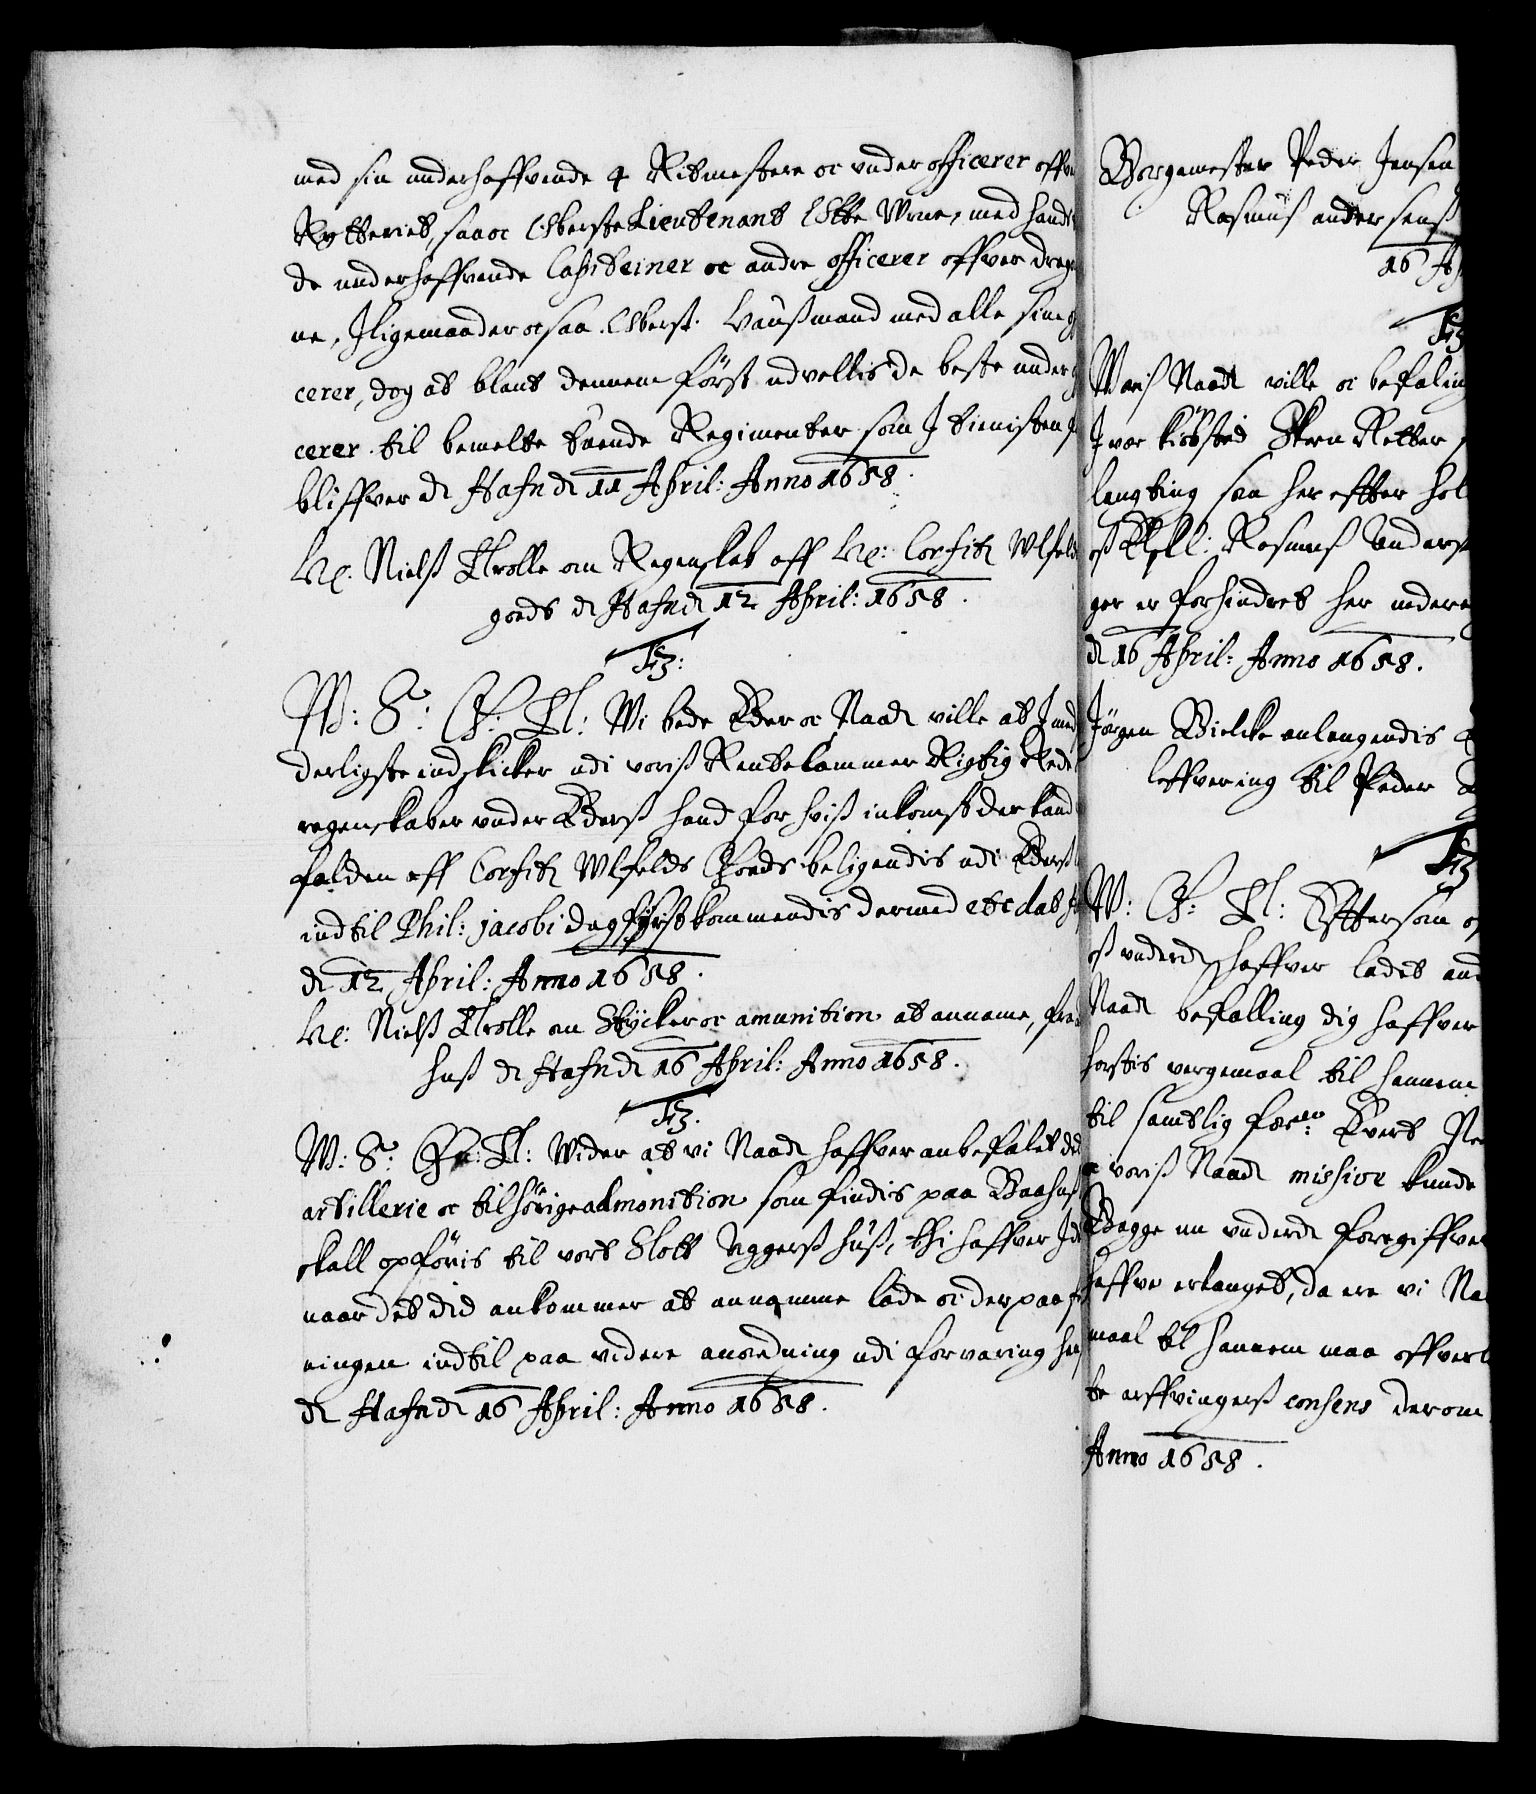 med sin underhaffvende 4 Ritmestere oc under officerer offver
Rytteriet, saa oc Oberste Lieutenant Otte Wrne, med hands
de underhaffvende Capiteiner oc andre officerer offver drago
ne, J ligemaader ocsaa Oberst: Haussmand med alle sine
cerer, dog at blant dennem først udvellis de beste under
cerer til bemelte tuende Regimenter som J tienisten
bliffver de Hafn de 11 April: Anno 1658.
Hr: Nielß Trolle om Regenskab aff Hr: Corfitz Wlfeldt
goeds de Hafn de 12 April: 1658.
F 3:
W: S: G: T: Wi bede Eder oc Naade ville at J med
derligste indskicker udi voriß Rentekammer Rigtig Rede
regenskaber under Ederß haand for hviß inkomst der kand
falden aff Corfitz Wlfelds Goeds beligendis udi Ederß
indtil Phil: jacobi dag førstkommendis dermed etc dat
de 12 April: Anno 1658.
Hr: Nielß Trolle om Stycker oc amunition at anname, fra
huß de Hafn de 16 April: Anno 1658.
F 3.
W: S: G: T: Wider at vi Naade haffver anbefalet
artillerie oc tilhørige admonition som findis paa Baahuß
skall opføris til vort Slott Aggerß huß, thi haffver J
naar det did ankommer at annamme lade oc der paa
ningen indtil paa videre anordning udi forvaring
de Hafn de 16 April: Anno 1658.
Borgemester Peder Jensen
Rasmuß anderßenß
16 Ap
F 3
Woriß Naade ville oc befaling
J vor kiøbsted
langting saa her effter hol
oß Elskl: Rasmuß Anders
ger er forhindret her nedere
de 16 April: Anno 1658.
Jørgen Bielcke anlangendis
leffvering til Peder
F 3
W: G: T: Efftersom
oß underd haffver ladet and
Naade befalling dig haffver
hastis vergemaal til hannem
til samtlig
voriß Naade missive kunde
Bagge nu underd foregiffver
haffve erlanget, da ere vi Na
maal til hannem maa offverl
te arffvingerß consens derom
Anno 1658.